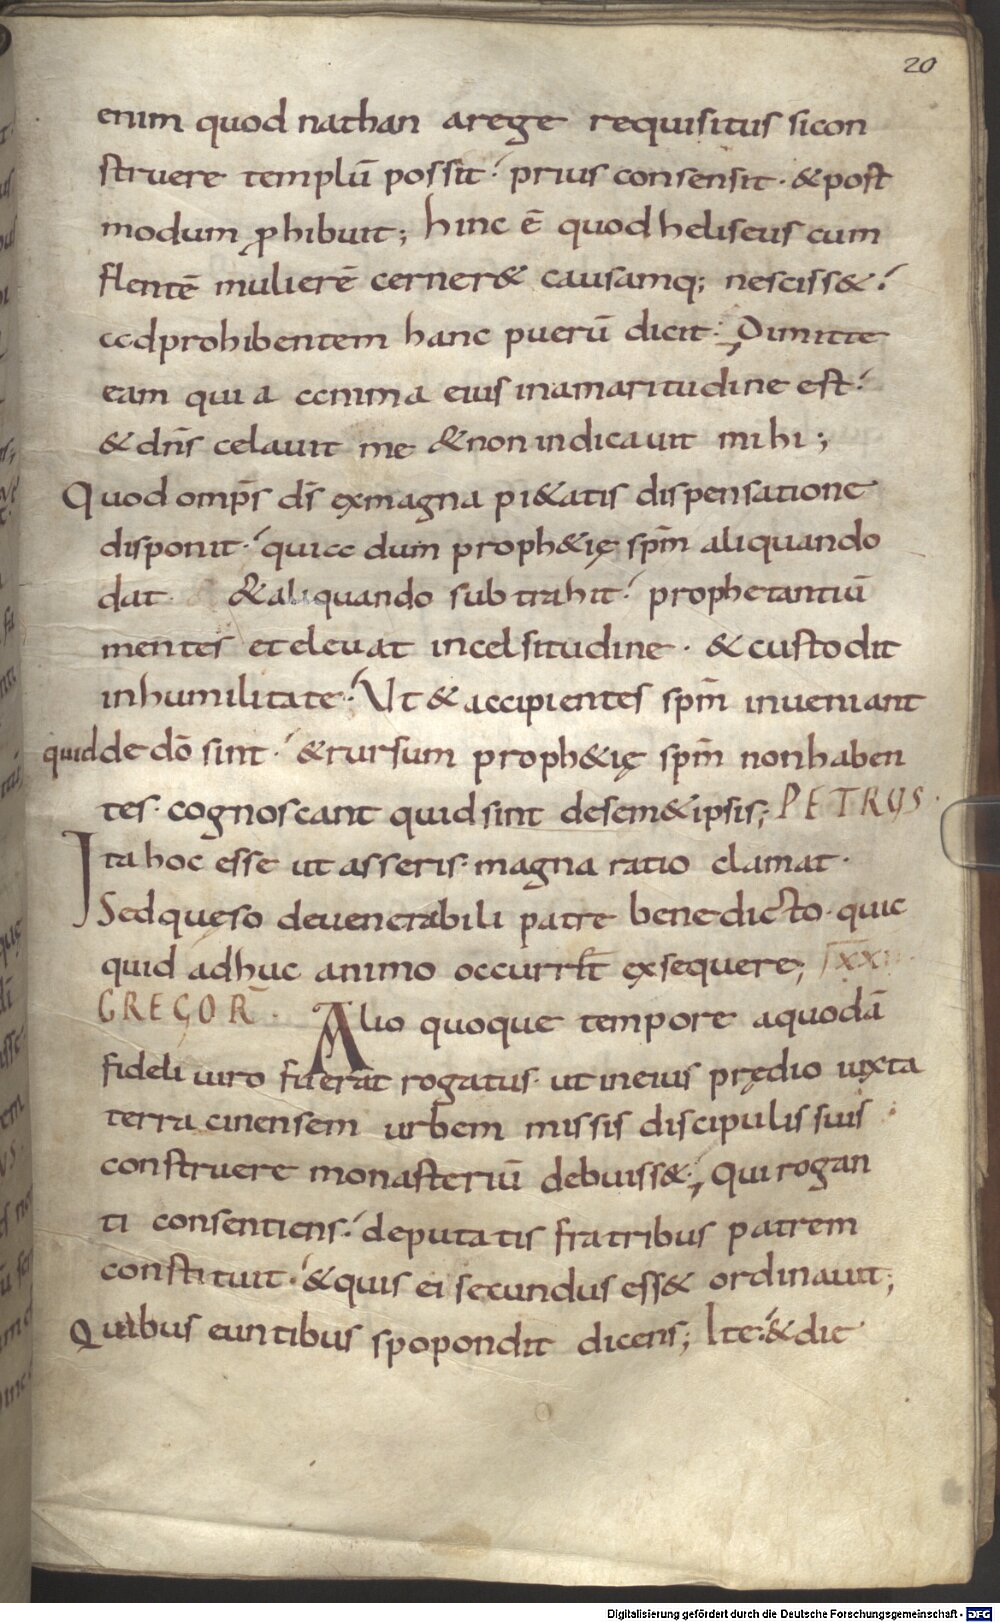 20
enim quod nathan arege requisitus sicon
struere templū possit· prius consensit· &post
modum ꝓhibuit; hinc ē quod heliseus cum
flentē mulierē cerner& causamq; nesciss&
adprohibentem hanc puerū dicit; Dimitte
eam qui a anima eius inamaritudine est
& dn̄s celauit me &non indicauit mihi;
Quod omp̄s d̄s exmagna pi&atis dispensatione
disponit· quia dum proph&ię sp̄m aliquando
dat &aliquando subtrahit· prophetantiū
mentes et eleuat incelsitudine· & custodit
inhumilitate· Ut & accipientes sp̄m inueniant
quidde dō sint· &rursum proph&ię sp̄m nonhaben
tes· cognoscant quid sint desem&ipsis; PETRUS·
Ita hoc esse ut asseris· magna ratio clamat·
Sedquęso deuenerabili patre benedicto· quic
quid adhuc animo occurrit exsequere;
GREGOR̄· Alio quoque tempore aquodā
fideli uiro fuerat rogatus· ut ineius prędio iuxta
terracinensem urbem missis discipulis suis
construere monasteriū debuiss&; Qui rogan
ti consentiens· deputatis fratribus patrem
constituit· &quis ei secundus ess& ordinauit;
Quibus euntibus spopondit dicens; Ite· &die
Digitalisierung gefördert durch die Deutsche Forschungsgemeinschaft - DFG